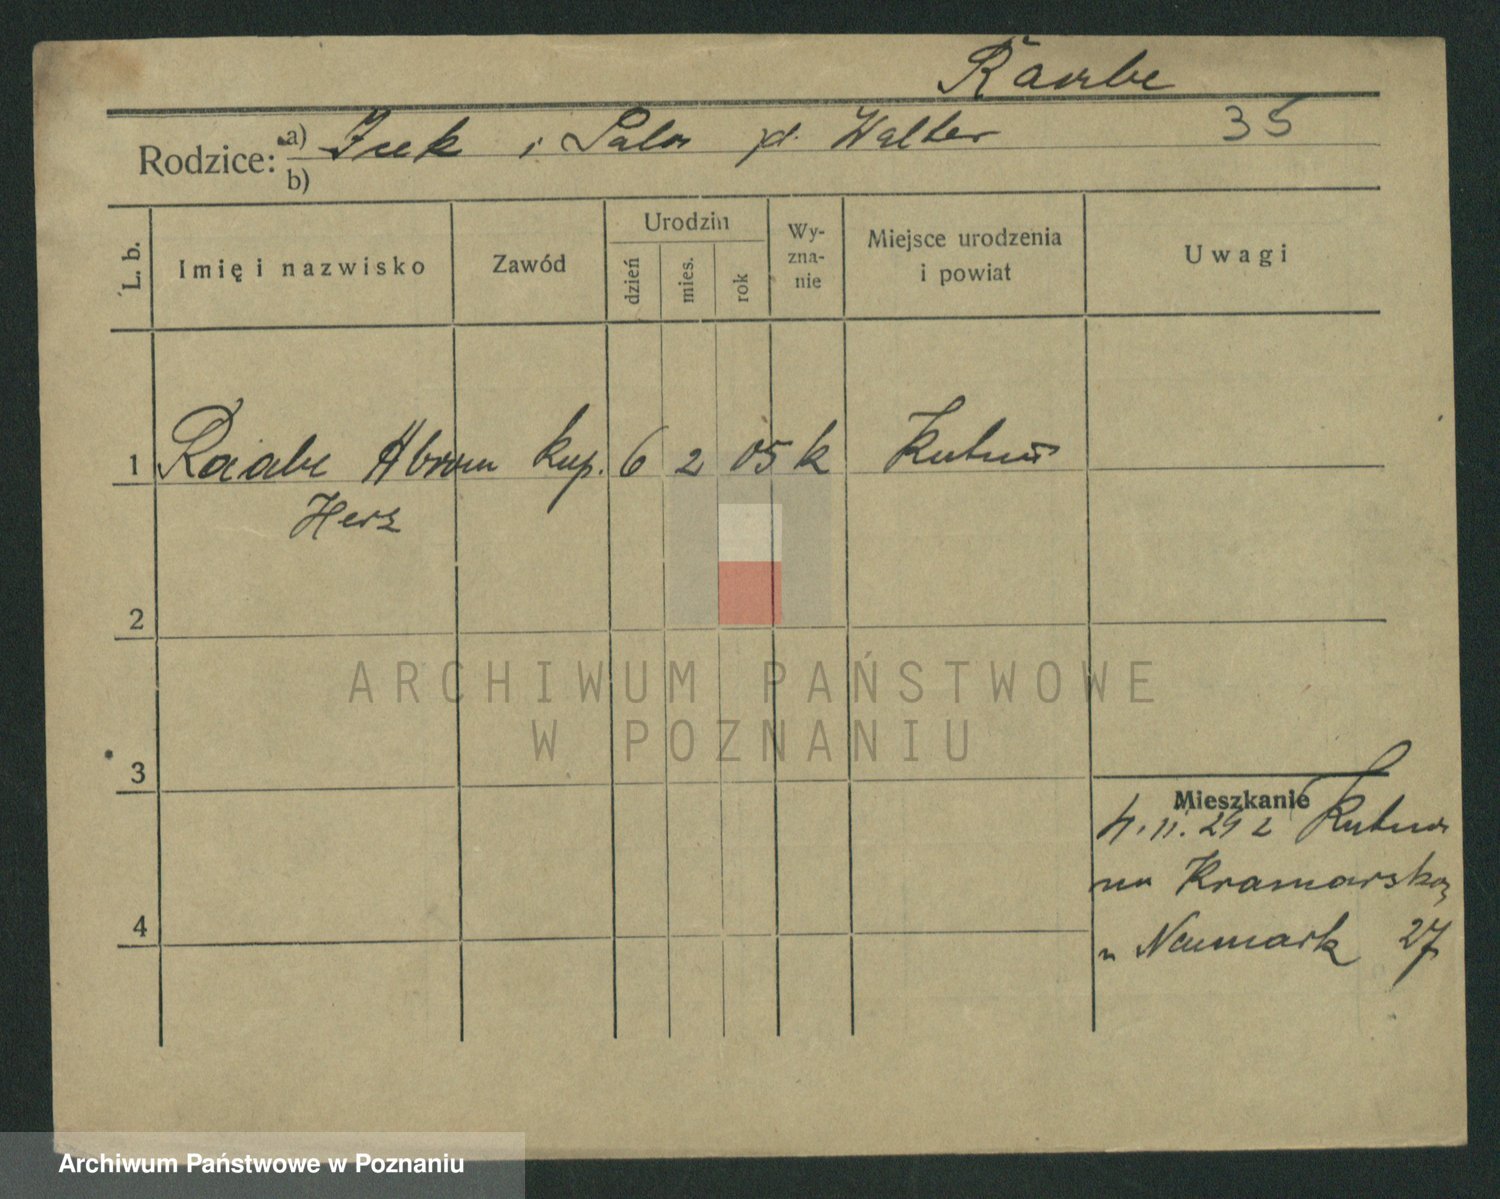 Raabe
Rodzice: a) Icek i Sala d. Walter 35
b)
L. b.
Imię i nazwisko
Zawód
Urodzin
dzień
mies.
rok
Wy-
zna-
nie
Miejsce urodzenia
i powiat
Uwagi
1 Raabe Abram kup. 6 2 05 k Kutno
Herz
2
ARCHIWUM PAŃSTWOWE
W POZNANIU
3
Mieszkanie
4. 11. 24 z Kutna
na Kramarską
" Neumark 27
4
Archiwum Państwowe w Poznaniu